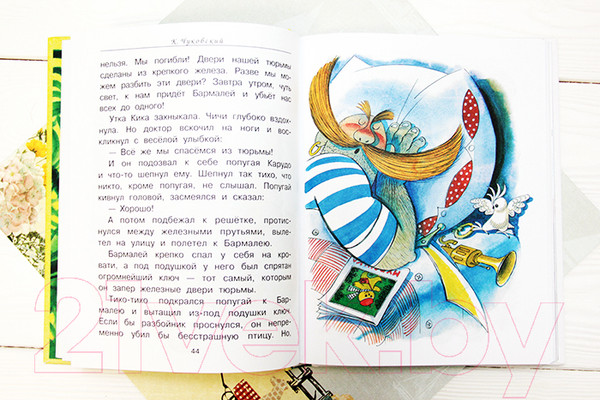 К. Чуковский
нельзя. Мы погибли! Двери нашей тюрьмы
сделаны из крепкого железа. Разве мы мо-
жем разбить эти двери? Завтра утром, чуть
свет, к нам придёт Бармалей и убьёт нас
всех до одного!
Утка Кика захныкала. Чичи глубоко вздох-
нула. Но доктор вскочил на ноги и вос-
кликнул с весёлой улыбкой:
— Всё же мы спасёмся из тюрьмы!
И он подозвал к себе попугая Карудо
и что-то шепнул ему. Шепнул так тихо, что
никто, кроме попугая, не слышал. Попугай
кивнул головой, засмеялся и сказал:
— Хорошо!
А потом подбежал к решётке, протис-
нулся между железными прутьями, выле-
тел на улицу и полетел к Бармалею.
Бармалей крепко спал у себя на кро-
вати, а под подушкой у него был спрятан
огромнейший ключ — тот самый, которым
он запер железные двери тюрьмы.
Тихо-тихо подкрался попугай к Бар-
малею и вытащил из-под подушки ключ.
Если бы разбойник проснулся, он непре-
менно убил бы бесстрашную птицу. Но,
44
21vek.by